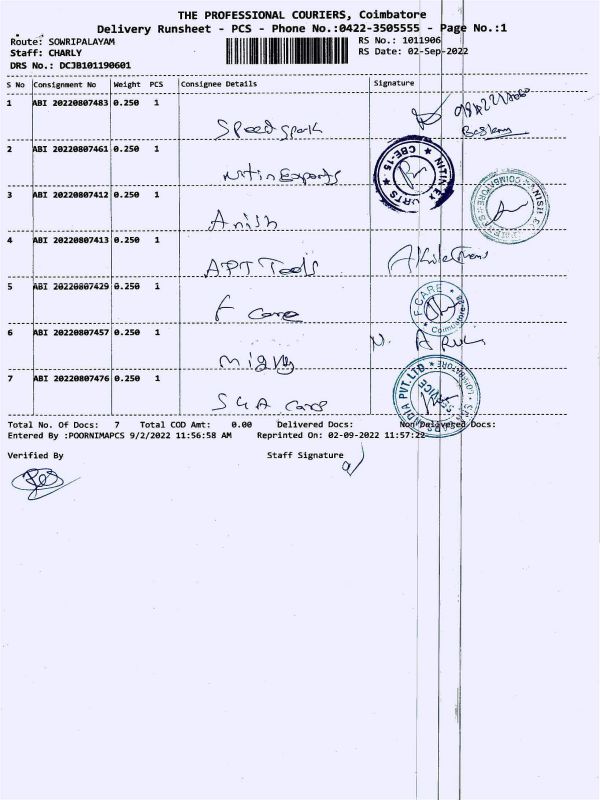 THE PROFESSIONAL COURIERS, Coimbatore
Delivery Runsheet - PCS - Phone No.:0422-3505555 - Page No.:1
Route: SOWRIPALAYAM RS No.: 1011906
Staff: CHARLY RS Date: 02-Sep-2022
DRS No.: DCJB101190601
S No Consignment No Weight PCS Consignee Details Signature
1 ABI 20220807483 0.250 1
Speed Spark
2 ABI 20220807461 0.250 1
Nitin Exports
CBE-15 NITIN EX
3 ABI 20220807412 0.250 1
Anish
COIMBATORE
4 ABI 20220807413 0.250 1
APT Tools
5 ABI 20220807429 0.250 1
F care
F CARE
Coimbatore
6 ABI 20220807457 0.250 1
N.
7 ABI 20220807476 0.250 1
SGA Cars
INDIA PVT. LTD. SERVICE
Total No. Of Docs: 7 Total COD Amt: 0.00 Delivered Docs: Non Delivered Docs:
Entered By :POORNIMAPCS 9/2/2022 11:56:58 AM Reprinted On: 02-09-2022 11:57:22
Verified By Staff Signature